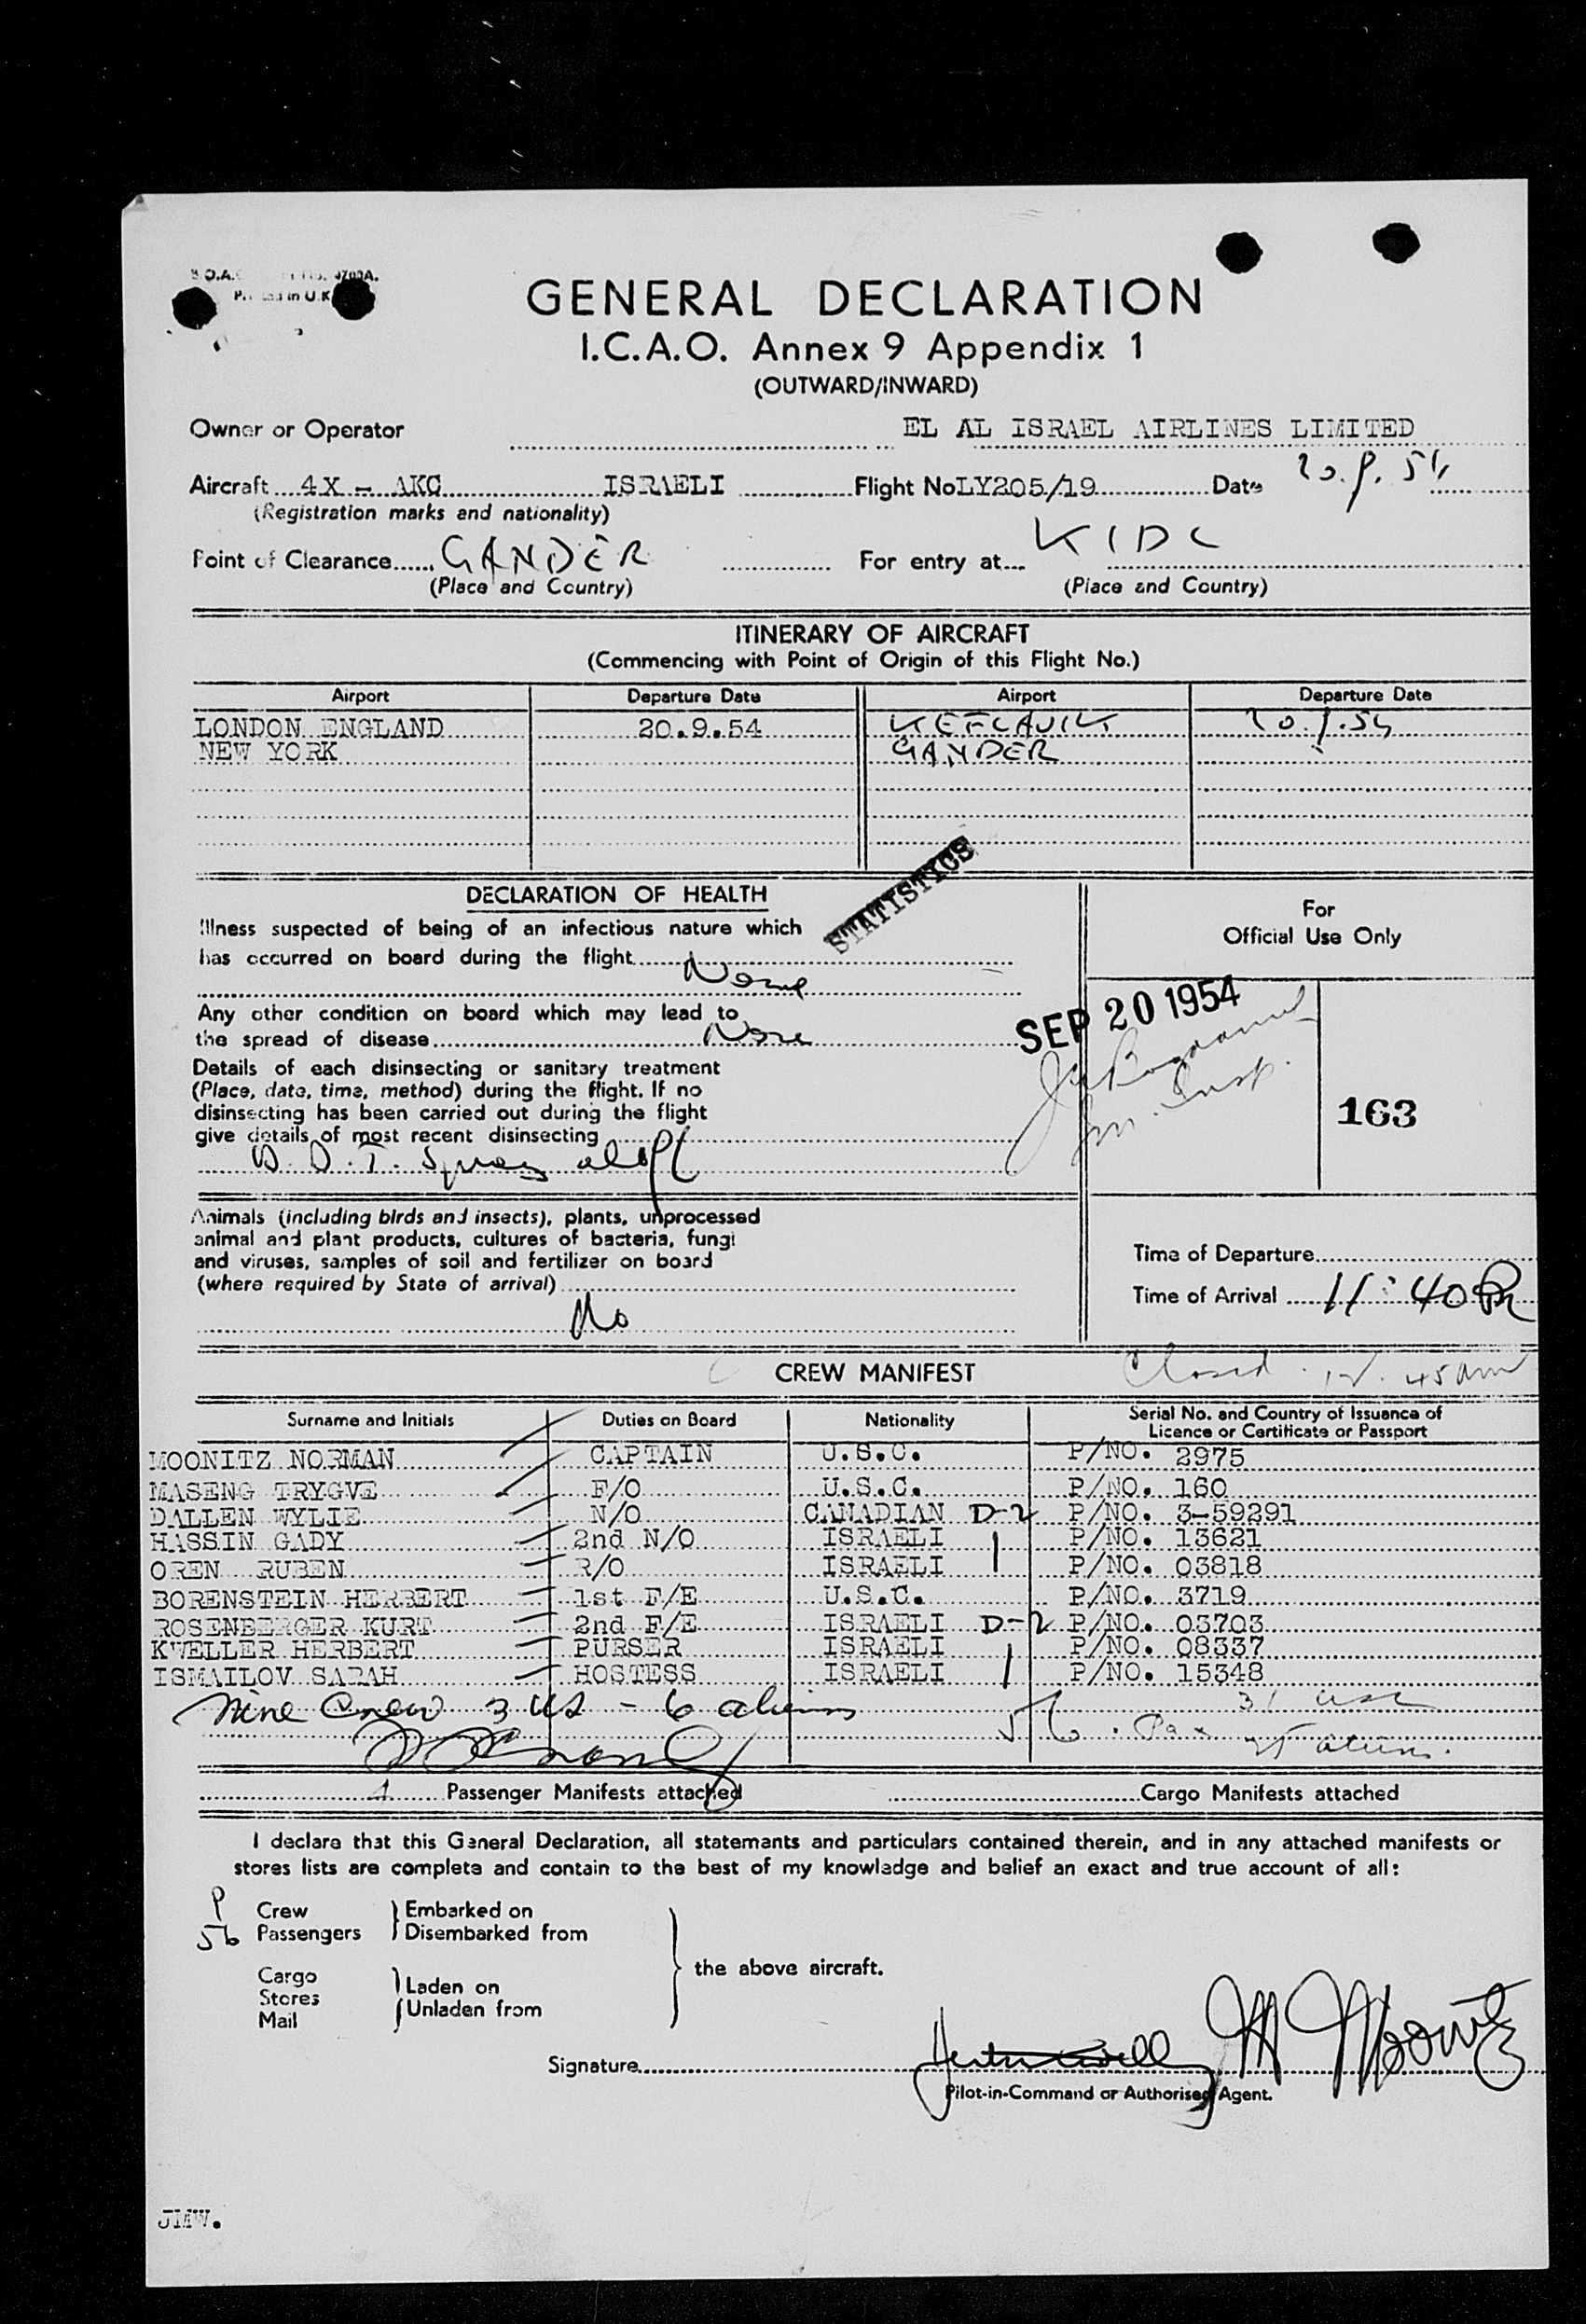 Printed in U.K.
GENERAL DECLARATION
I.C.A.O. Annex 9 Appendix 1
(OUTWARD/INWARD)
Owner or Operator EL AL ISRAEL AIRLINES LIMITED
Aircraft 4X - AKC ISRAELI Flight No LY205/19 Date 20.9.54
(Registration marks and nationality)
Point of Clearance GANDER For entry at KIDL
(Place and Country) (Place and Country)
ITINERARY OF AIRCRAFT
(Commencing with Point of Origin of this Flight No.)
Airport Departure Date Airport Departure Date
LONDON ENGLAND 20.9.54 KEFLAVIK 20.9.54
NEW YORK GANDER
STATISTICS
DECLARATION OF HEALTH
Illness suspected of being of an infectious nature which
has occurred on board during the flight
None
Any other condition on board which may lead to
the spread of disease None
Details of each disinsecting or sanitary treatment
(Place, date, time, method) during the flight. If no
disinsecting has been carried out during the flight
give details of most recent disinsecting
D.D.T. Spray aloft
For
Official Use Only
SEP 20 1954
Im. Insp.
163
Animals (including birds and insects), plants, unprocessed
animal and plant products, cultures of bacteria, fungi
and viruses, samples of soil and fertilizer on board
(where required by State of arrival)
No
Time of Departure
Time of Arrival 11:40 PM
CREW MANIFEST Closed 12.45 am
Surname and Initials Duties on Board Nationality Serial No. and Country of Issuance of
Licence or Certificate or Passport
MOONITZ NORMAN CAPTAIN U.S.C. P/NO. 2975
MASENG TRYGVE F/O U.S.C. P/NO. 160
DALLEN WYLIE N/O CANADIAN D-2 P/NO. 3-59291
HASSIN GADY 2nd N/O ISRAELI P/NO. 13621
OREN RUBEN R/O ISRAELI P/NO. 03818
BORENSTEIN HERBERT 1st F/E U.S.C. P/NO. 3719
ROSENBERGER KURT 2nd F/E ISRAELI D-2 P/NO. 03703
KWELLER HERBERT PURSER ISRAELI P/NO. 08337
ISMAILOV SARAH HOSTESS ISRAELI P/NO. 15348
Nine Crew 3 US - 6 aliens 31 usc
56 Pax 25 aliens.
1 Passenger Manifests attached Cargo Manifests attached
I declare that this General Declaration, all statemants and particulars contained therein, and in any attached manifests or
stores lists are complete and contain to the best of my knowledge and belief an exact and true account of all:
9 Crew Embarked on
56 Passengers Disembarked from
the above aircraft.
Cargo Laden on
Stores
Mail Unladen from
Signature N Moonitz
Pilot-in-Command or Authorised Agent.
JMW.